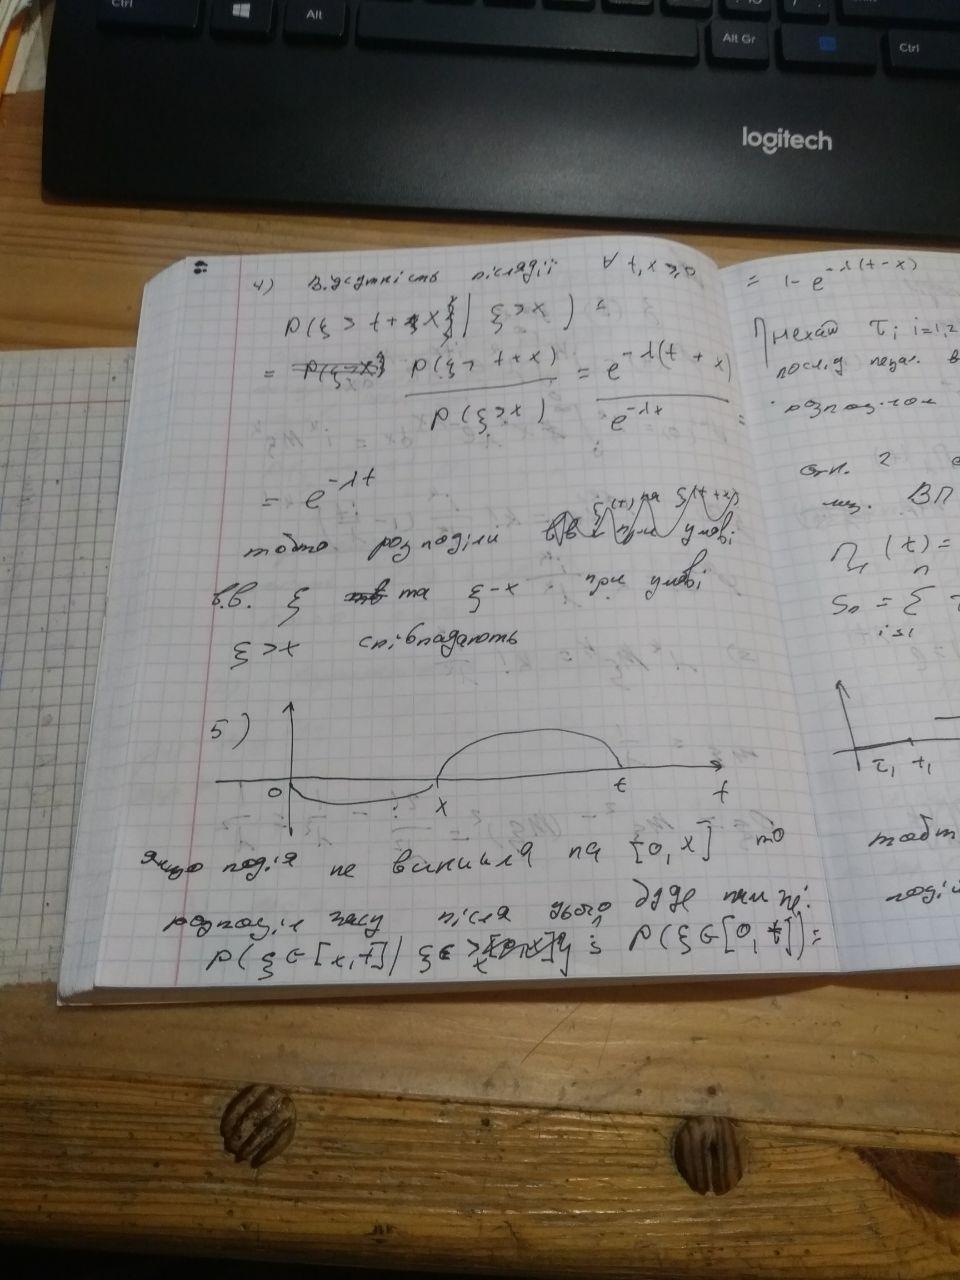 Ctrl
Alt
Alt Gr
Ctrl
logitech
4) Відсутність післядії ∀ t,x≥0
P(ξ < t+x | ξ < x) =
= P(ξ < t+x) / P(ξ < x) = e^{-λ(t+x)} / e^{-λt} =
= e^{-λt}
тобто розподіли
в.в. ξ та ξ-x при умові
ξ<x співпадають
5)
0 x t t
якщо подія не виникла на [0,x] то
розподіл часу після цього буде
P(ξ∈[x,t]| P(ξ∈[0,t])=
= 1-e^{-λ(t-x)}
нехай τ_i i=1,2
послід незал. в
розподілом
озн. 2
ВП
(t) =
S_n = Σ
i=1
τ_1 t_1
тобт
подій